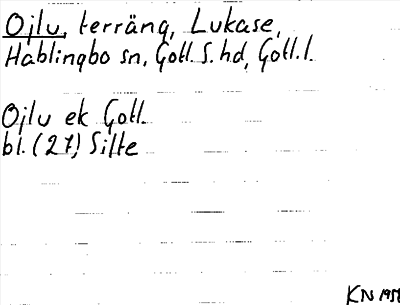 Ojlu, terräng, Lukase,
Hablingbo sn, Gotl. S. hd, Gotl. l.
Ojlu ek Gotl.
bl. (27) Silte
KN 1951